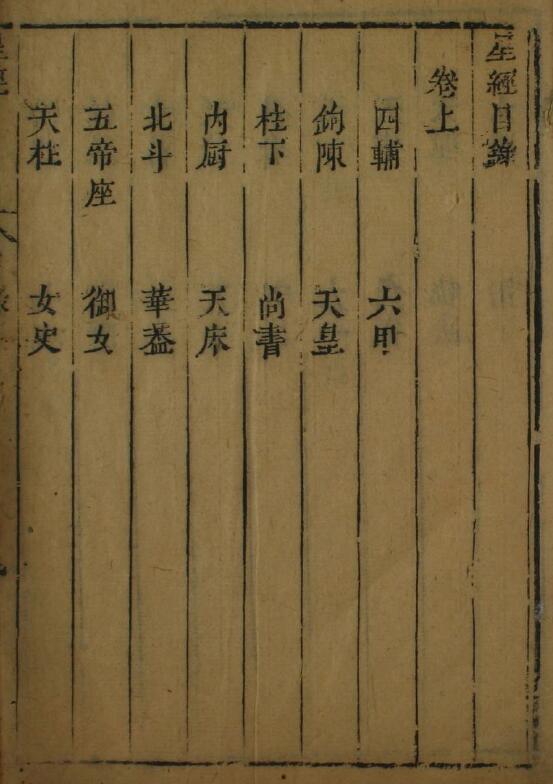 星經目錄
卷上
四輔 六甲
鉤陳 天皇
柱下 尚書
内厨 天床
北斗 華葢
五帝座 御女
天柱 女史